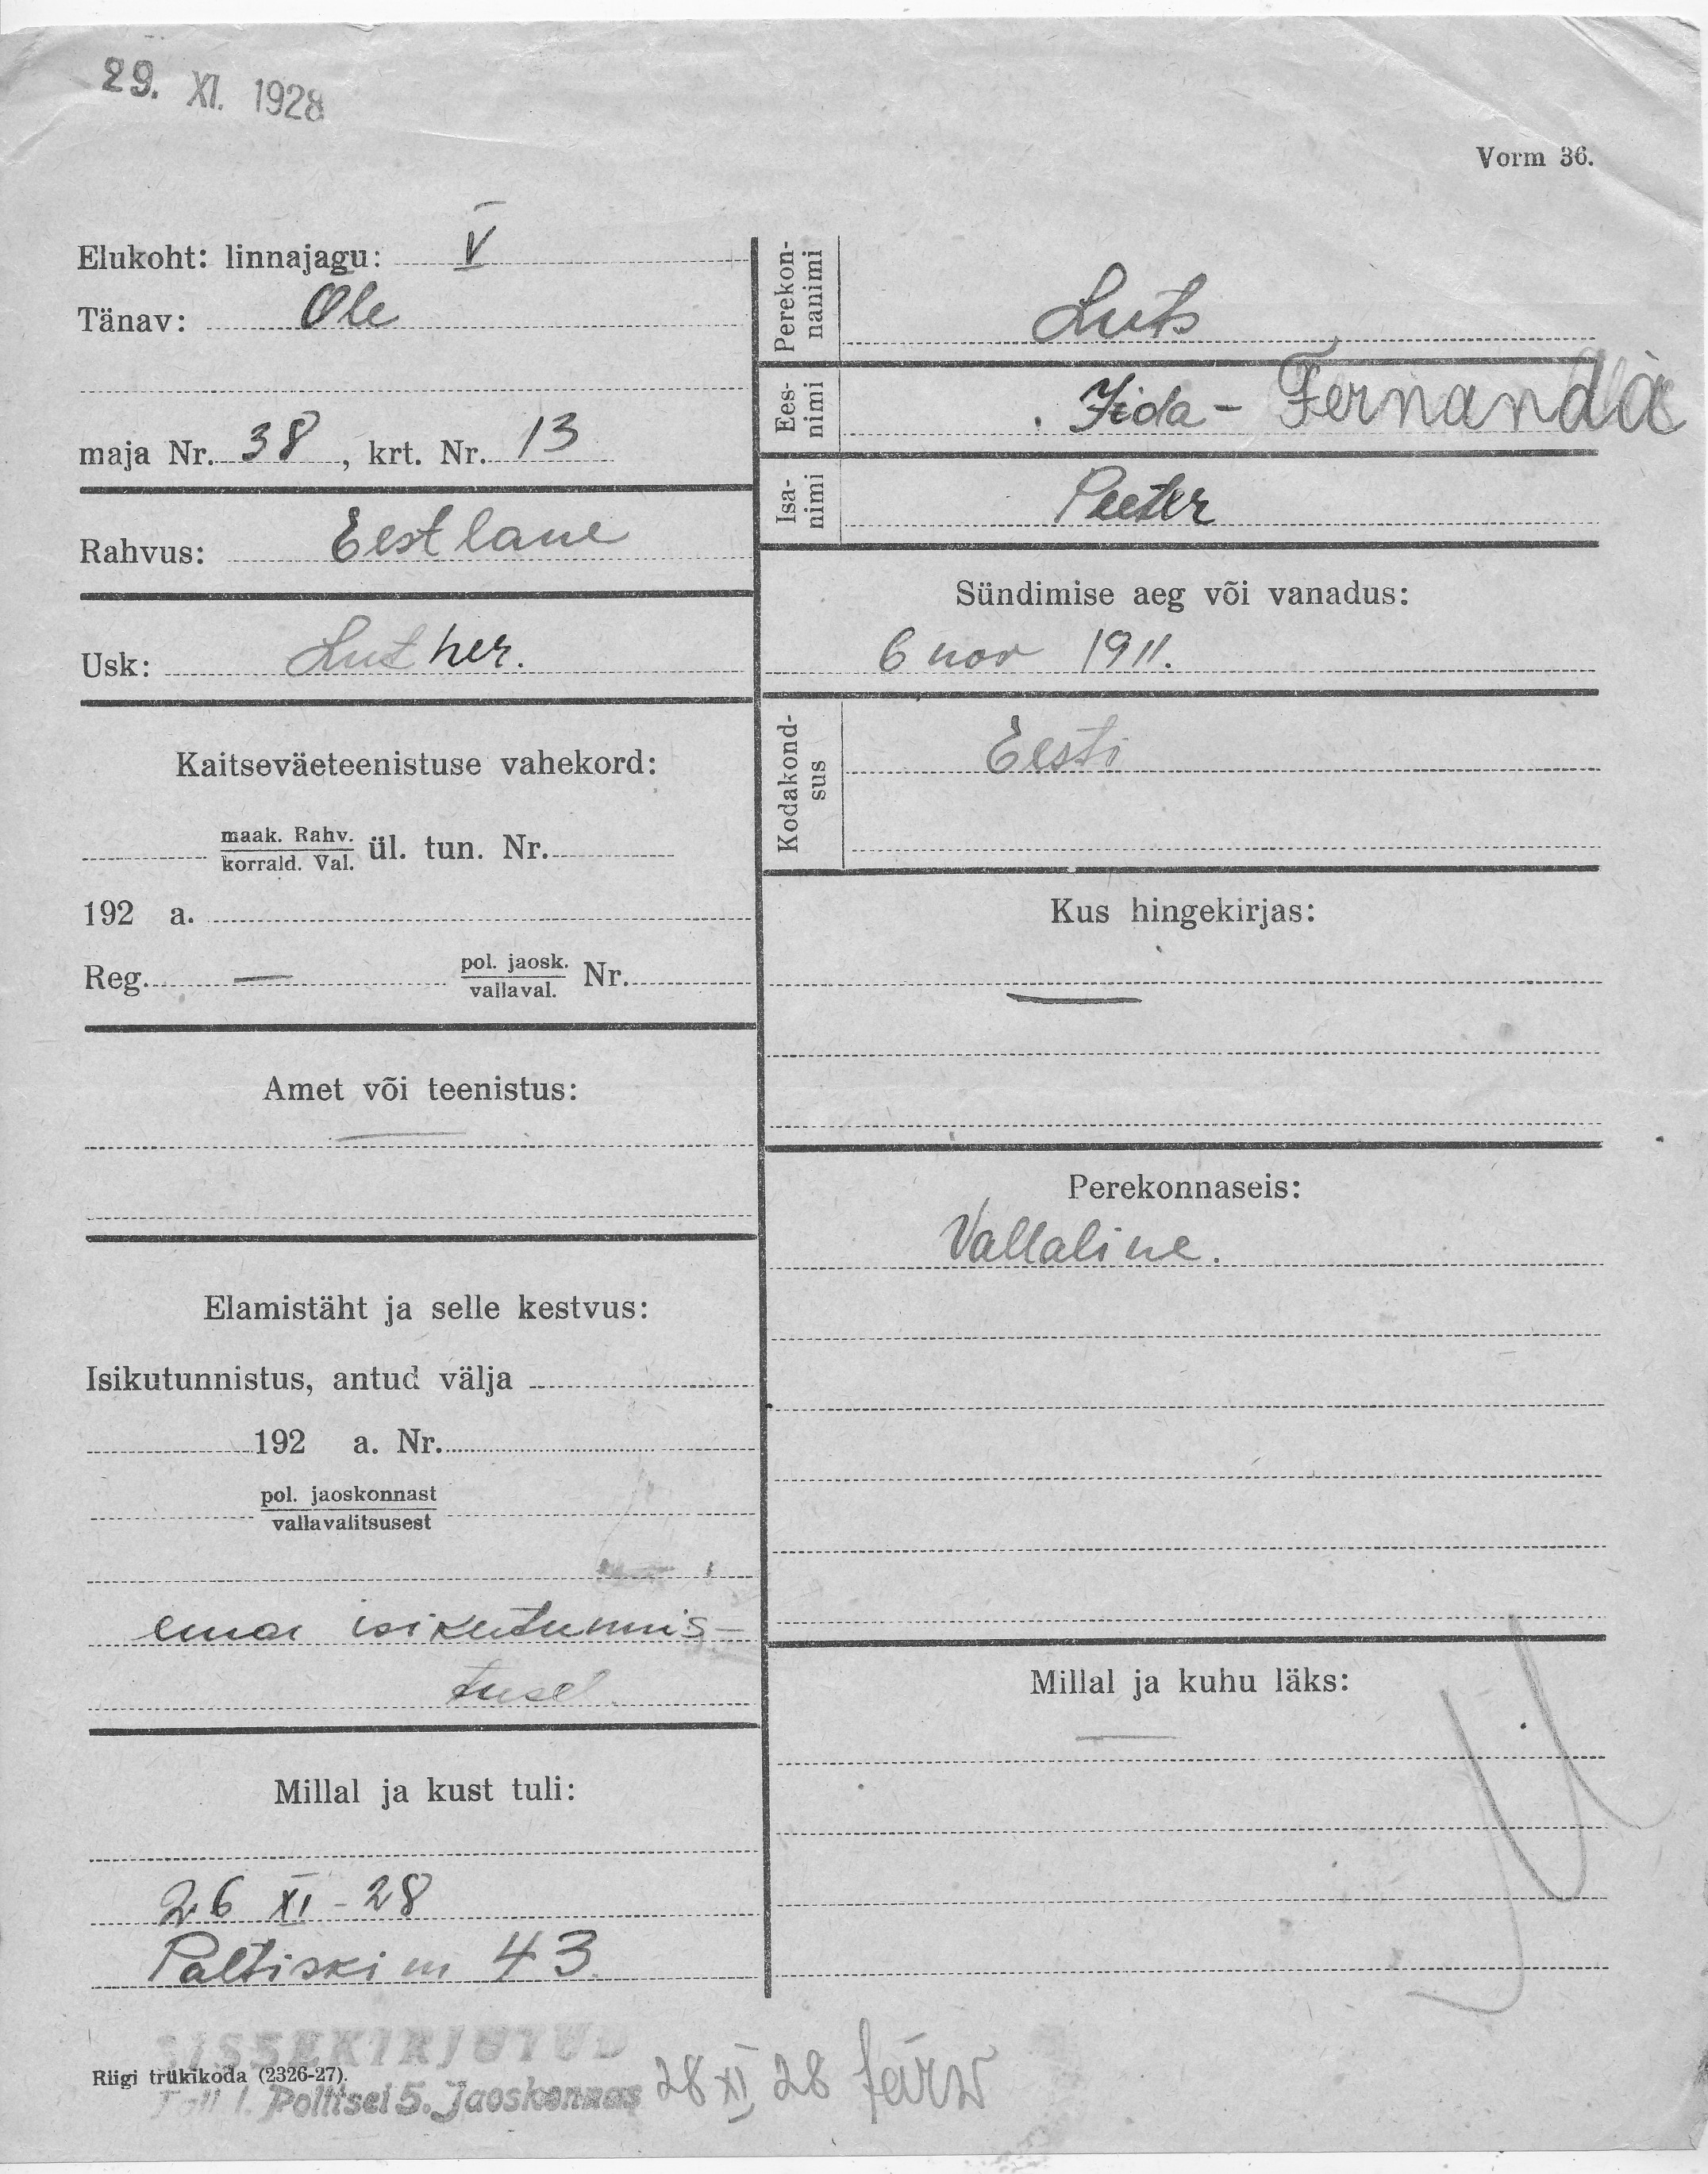 29. XI. 1928
Vorm 36.
Elukoht: linnajagu: V
Tänav: Ole
maja Nr. 38, krt. Nr. 13
Rahvus: Eestlane
Usk: Luther.
Kaitseväeteenistuse vahekord:
maak. Rahv.
korrald. Val.
ül. tun. Nr.
192 a.
Reg. — pol. jaosk.
vallaval.
Nr.
Amet või teenistus:
—
Elamistäht ja selle kestvus:
Isikutunnistus, antud välja
192 a. Nr.
pol. jaoskonnast
vallavalitsusest
ema isikutunnis-
tusel
Millal ja kust tuli:
26 XI - 28
Paltiski m 43.
Perekon-
nanimi
Luts
Ees-
nimi
Iida - Fernanda
Isa-
nimi
Peeter
Sündimise aeg või vanadus:
6 nov 1911.
Kodakond-
sus
Eesti
Kus hingekirjas:
—
Perekonnaseis:
Vallaline.
Millal ja kuhu läks:
—
SISSEKIRJUTUD
Riigi trükikoda (2326-27).
Tall. l. Politsei 5. Jaoskonnas
28 XI 28